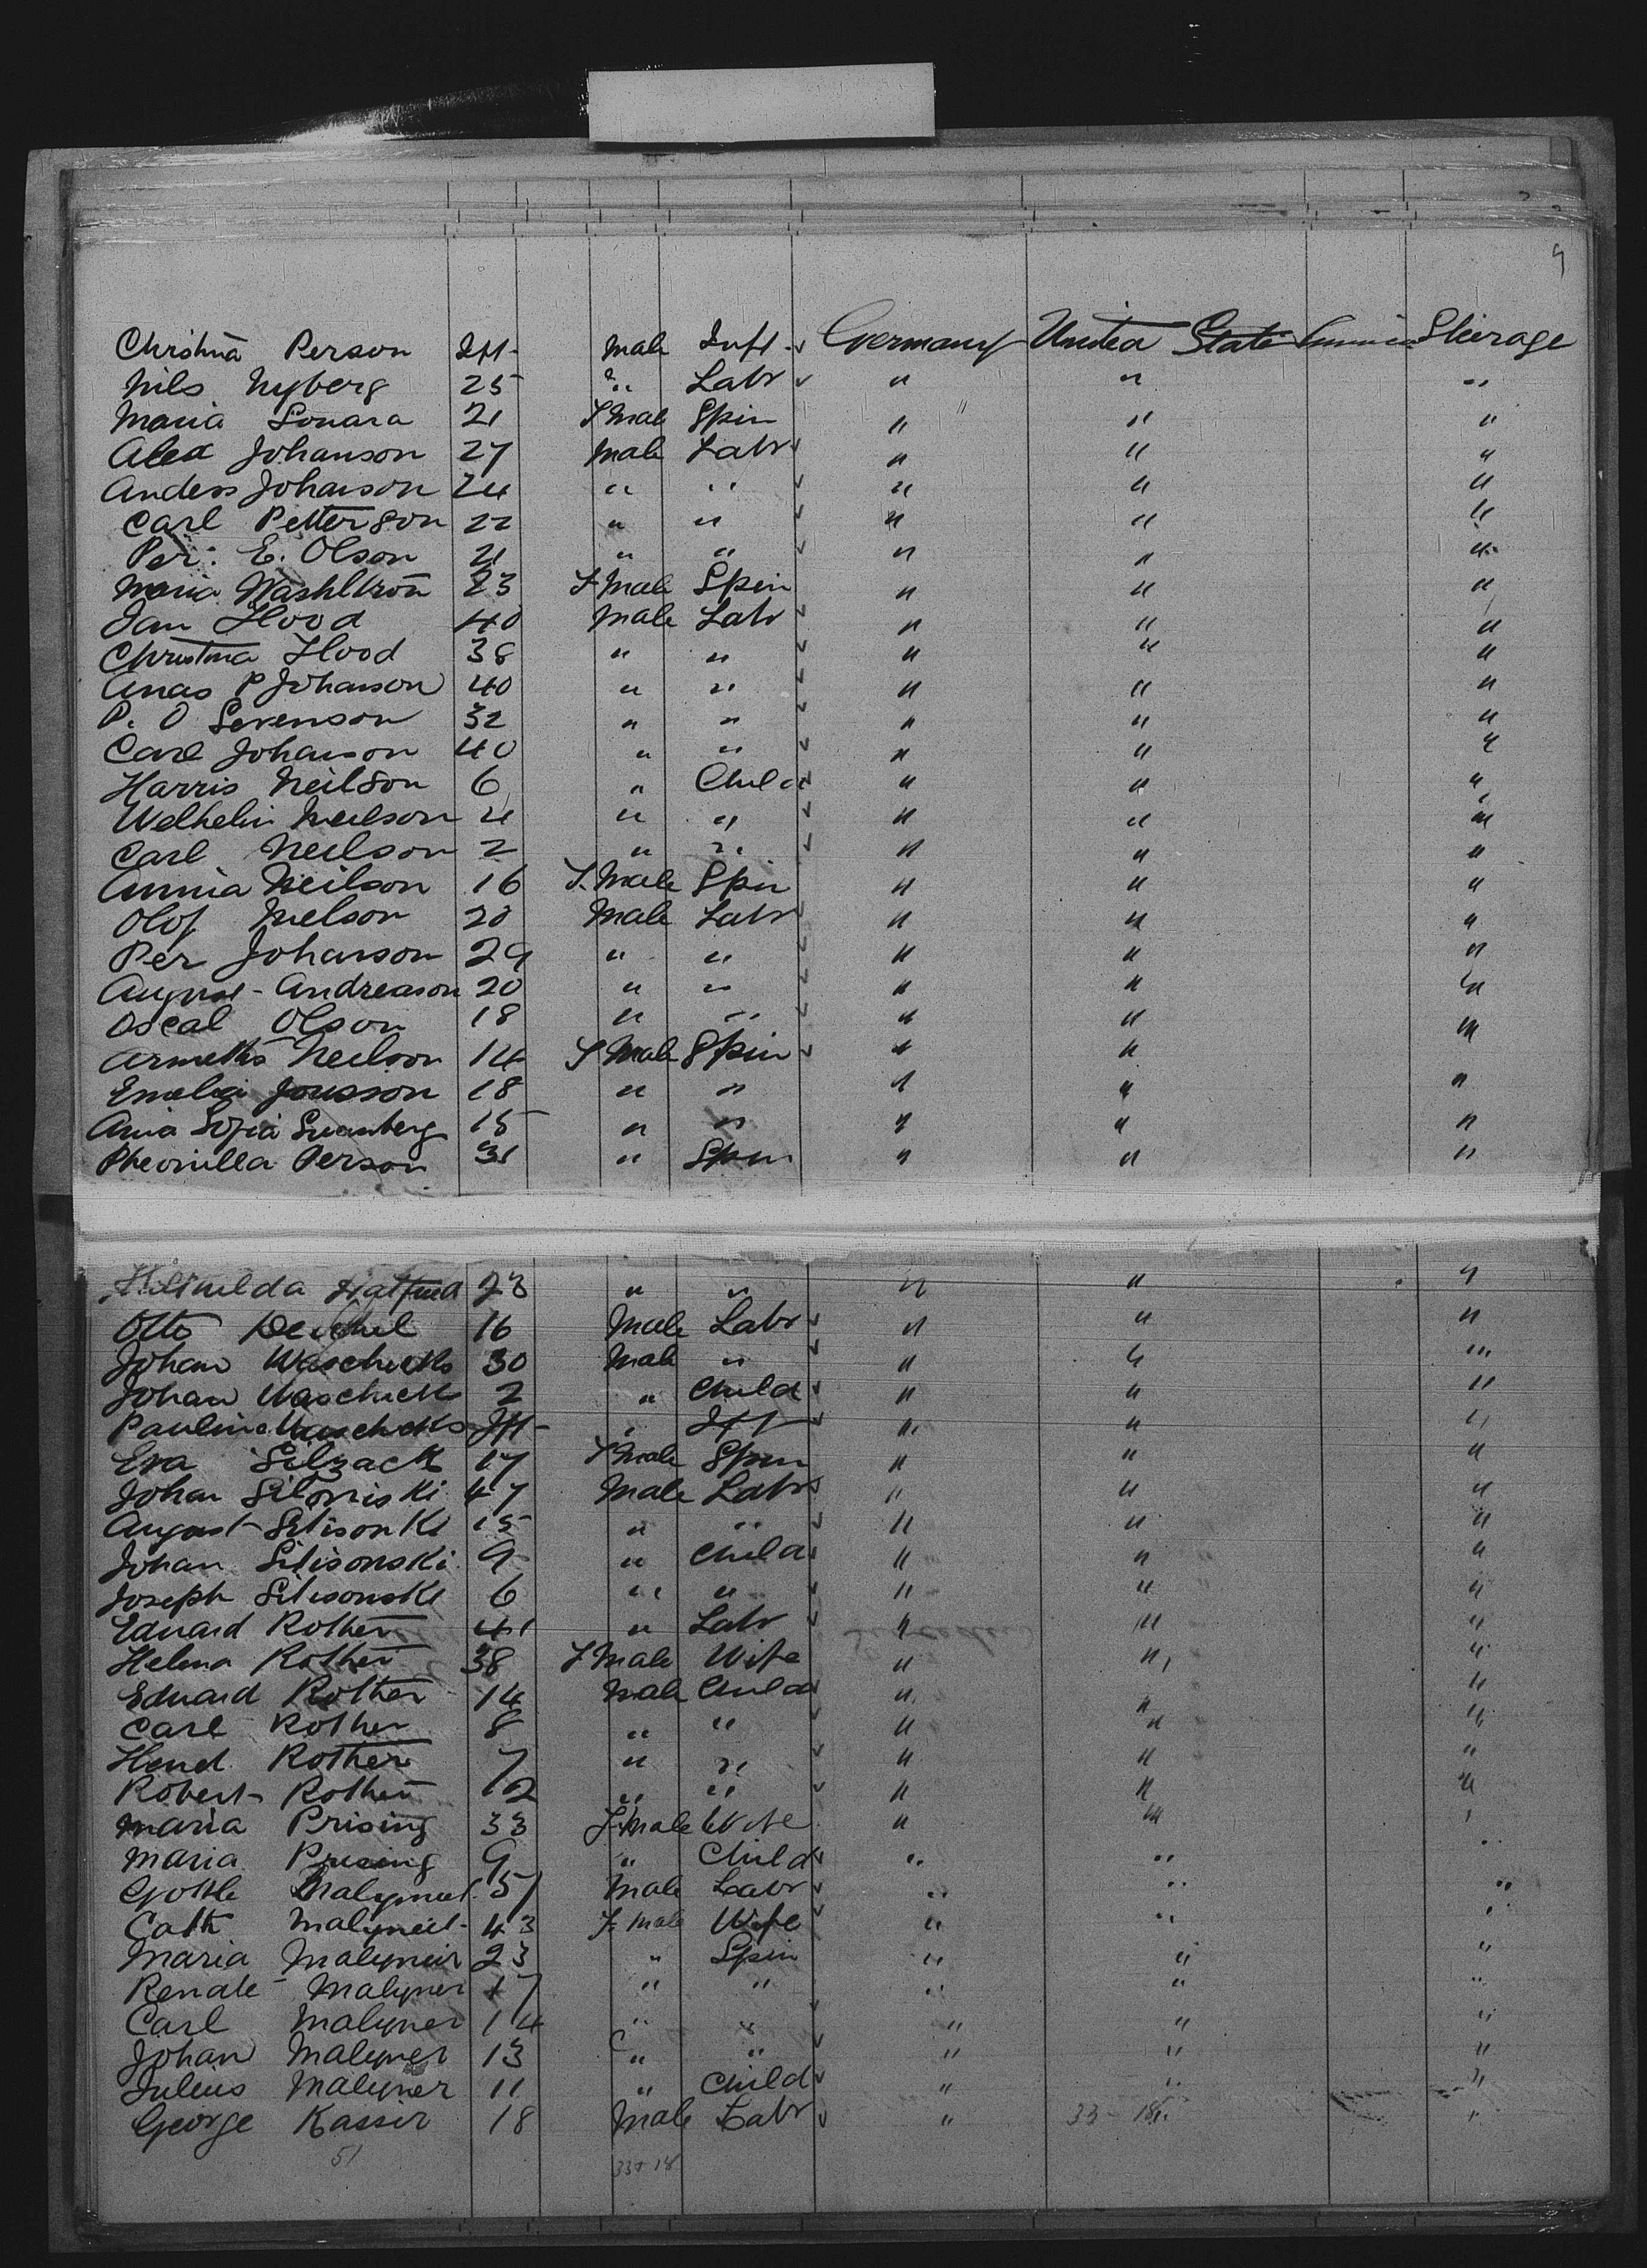 9
Christina Person Inft- Male Inft Germany United State Steerage
Nils Nyberg 25 " Labr " " "
Maria Sonara 21 F Male Spin " " "
Alex Johanson 27 Male Labr " " "
Anders Johanson 24 " " " " "
Carl Petterson 22 " " " " "
Per. E. Olson 21 " " " " "
Maria 23 F Male Spin " " "
Jan Flood 40 Male Labr " " "
Christina Flood 38 " " " " "
Anas P Johanson 40 " " " " "
P. O Sevenson 32 " " " " "
Carl Johanson 40 " " " " "
Harris Neilson 6 " Child " " "
Welhelm Neilson 4 " " " " "
Carl Neilson 2 " " " " "
Annia Neilson 16 F. Male Spin " " "
Olof Nelson 20 Male Labr " " "
Per Johanson 29 " " " " "
August - Andreason 20 " " " " "
Oscal Olson 18 " " " " "
Neilson 14 F Male Spin " " "
Emelia Jonsson 18 " " " " "
Ania Sofia 15 " " " " "
Person 31 " Spin " " "
23 " " " " "
Otto 16 Male Labr " " "
Johan Waschecks 30 Male " " " "
Johan Wascheck 2 " Child " " "
Pauline Waschecks Inft- " Inft " " "
Eva Silzack 17 F Male Spin " " "
Johan 47 Male Labr " " "
August Silisonki 15 " " " " "
Johan Silisonski 9 " Child " " "
Joseph Silisonski 6 " " " " "
Eduard Rother 41 " Labr " " "
Helena Rother 38 F Male Wife " " "
Eduard Rother 14 Male Child " " "
Carl Rother 8 " " " " "
Rother 7 " " " " "
Robert Rother 12 " " " " "
Maria Prising 33 F. Male Wife " " "
Maria Prising 9 " Child " " "
51 Male Labr " " "
Cath 43 F. Male Wife " " "
Maria 23 " Spin " " "
Renate Malyner 17 " " " " "
Carl Malyner 14 " " " " "
Johan Malyner 13 " " " " "
Julius Malyner 11 " Child " " "
George Kassir 18 Male Labr " 33 - 18 "
51 33+18